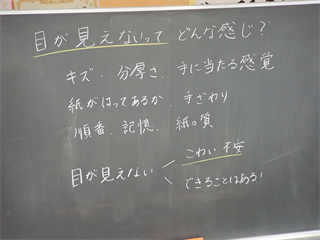 目が見えないって どんな感じ?
キズ、分厚さ、手に当たる感覚
紙がはってあるか 手ざわり
順番、記憶、紙の質
目が見えない
こわい 不安
できることはある!